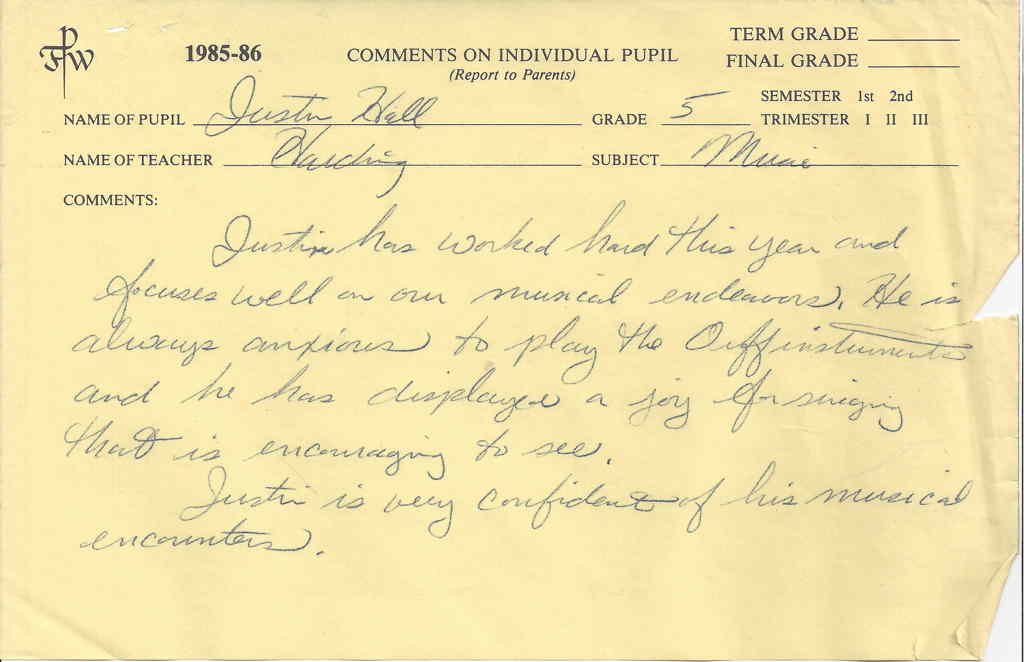 FPW
1985-86
COMMENTS ON INDIVIDUAL PUPIL
(Report to Parents)
TERM GRADE
FINAL GRADE
SEMESTER 1st 2nd
TRIMESTER I II III
NAME OF PUPIL Justin Hall GRADE 5
NAME OF TEACHER Harding SUBJECT Music
COMMENTS:
Justin has worked hard this year and
focuses well on our musical endeavors. He is
always anxious to play the Orff instruments
and he has displayed a joy for singing
that is encouraging to see.
Justin is very confident of his musical
encounters.